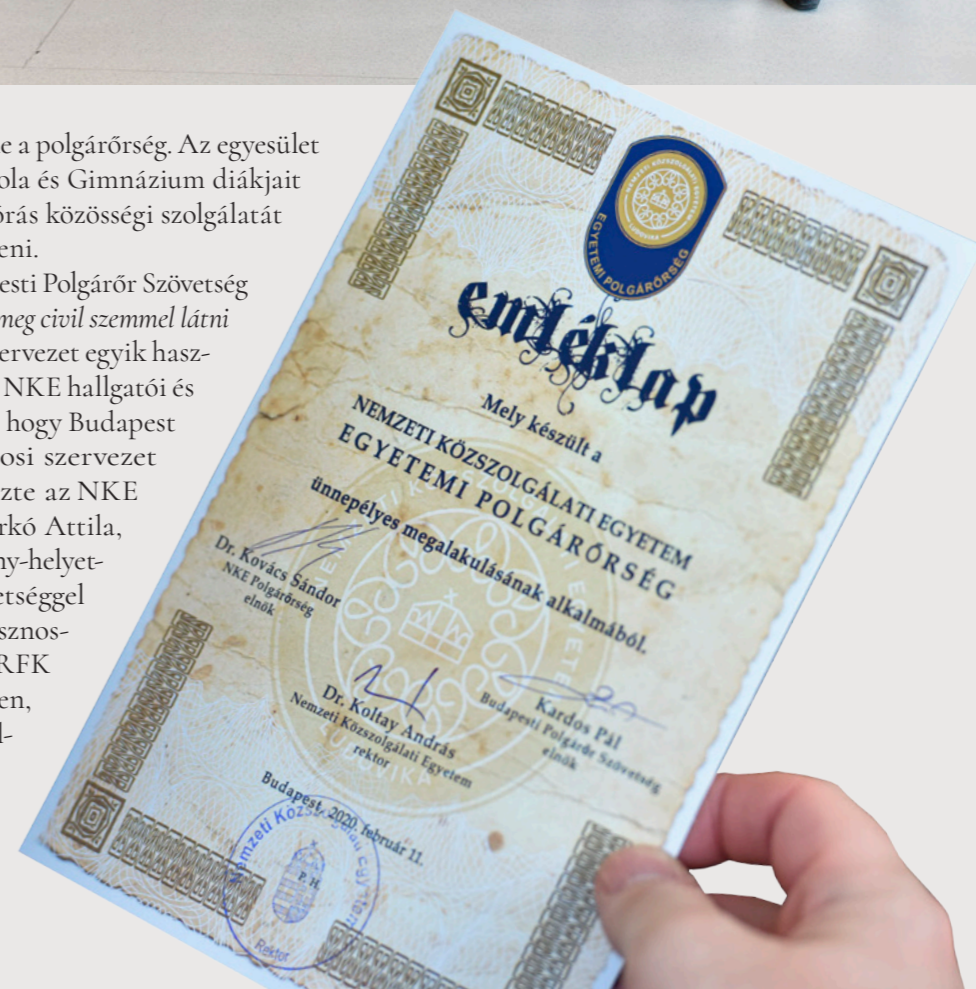 e a polgárőrség. Az egyesület
ola és Gimnázium diákjait
órás közösségi szolgálatát
eni.
esti Polgárőr Szövetség
meg civil szemmel látni
ervezet egyik hasz-
NKE hallgatói és
hogy Budapest
osi szervezet
zte az NKE
rkó Attila,
ny-helyet-
etséggel
sznos-
RFK
en,
l-
NEMZETI KÖZSZOLGÁLATI EGYETEM
LUDOVIKA
EGYETEMI POLGÁRŐRSÉG
emléklap
Mely készült a
NEMZETI KÖZSZOLGÁLATI EGYETEM
EGYETEMI POLGÁRŐRSÉG
ünnepélyes megalakulásának alkalmából.
Dr. Kovács Sándor
NKE Polgárőrség
elnök
Dr. Koltay András
Nemzeti Közszolgálati Egyetem
rektor
Kardos Pál
Budapesti Polgárőr Szövetség
elnök
LUDOVIKA
Budapest, 2020. február 11.
Nemzeti Közszolgálati Egyetem
P. H.
Rektor